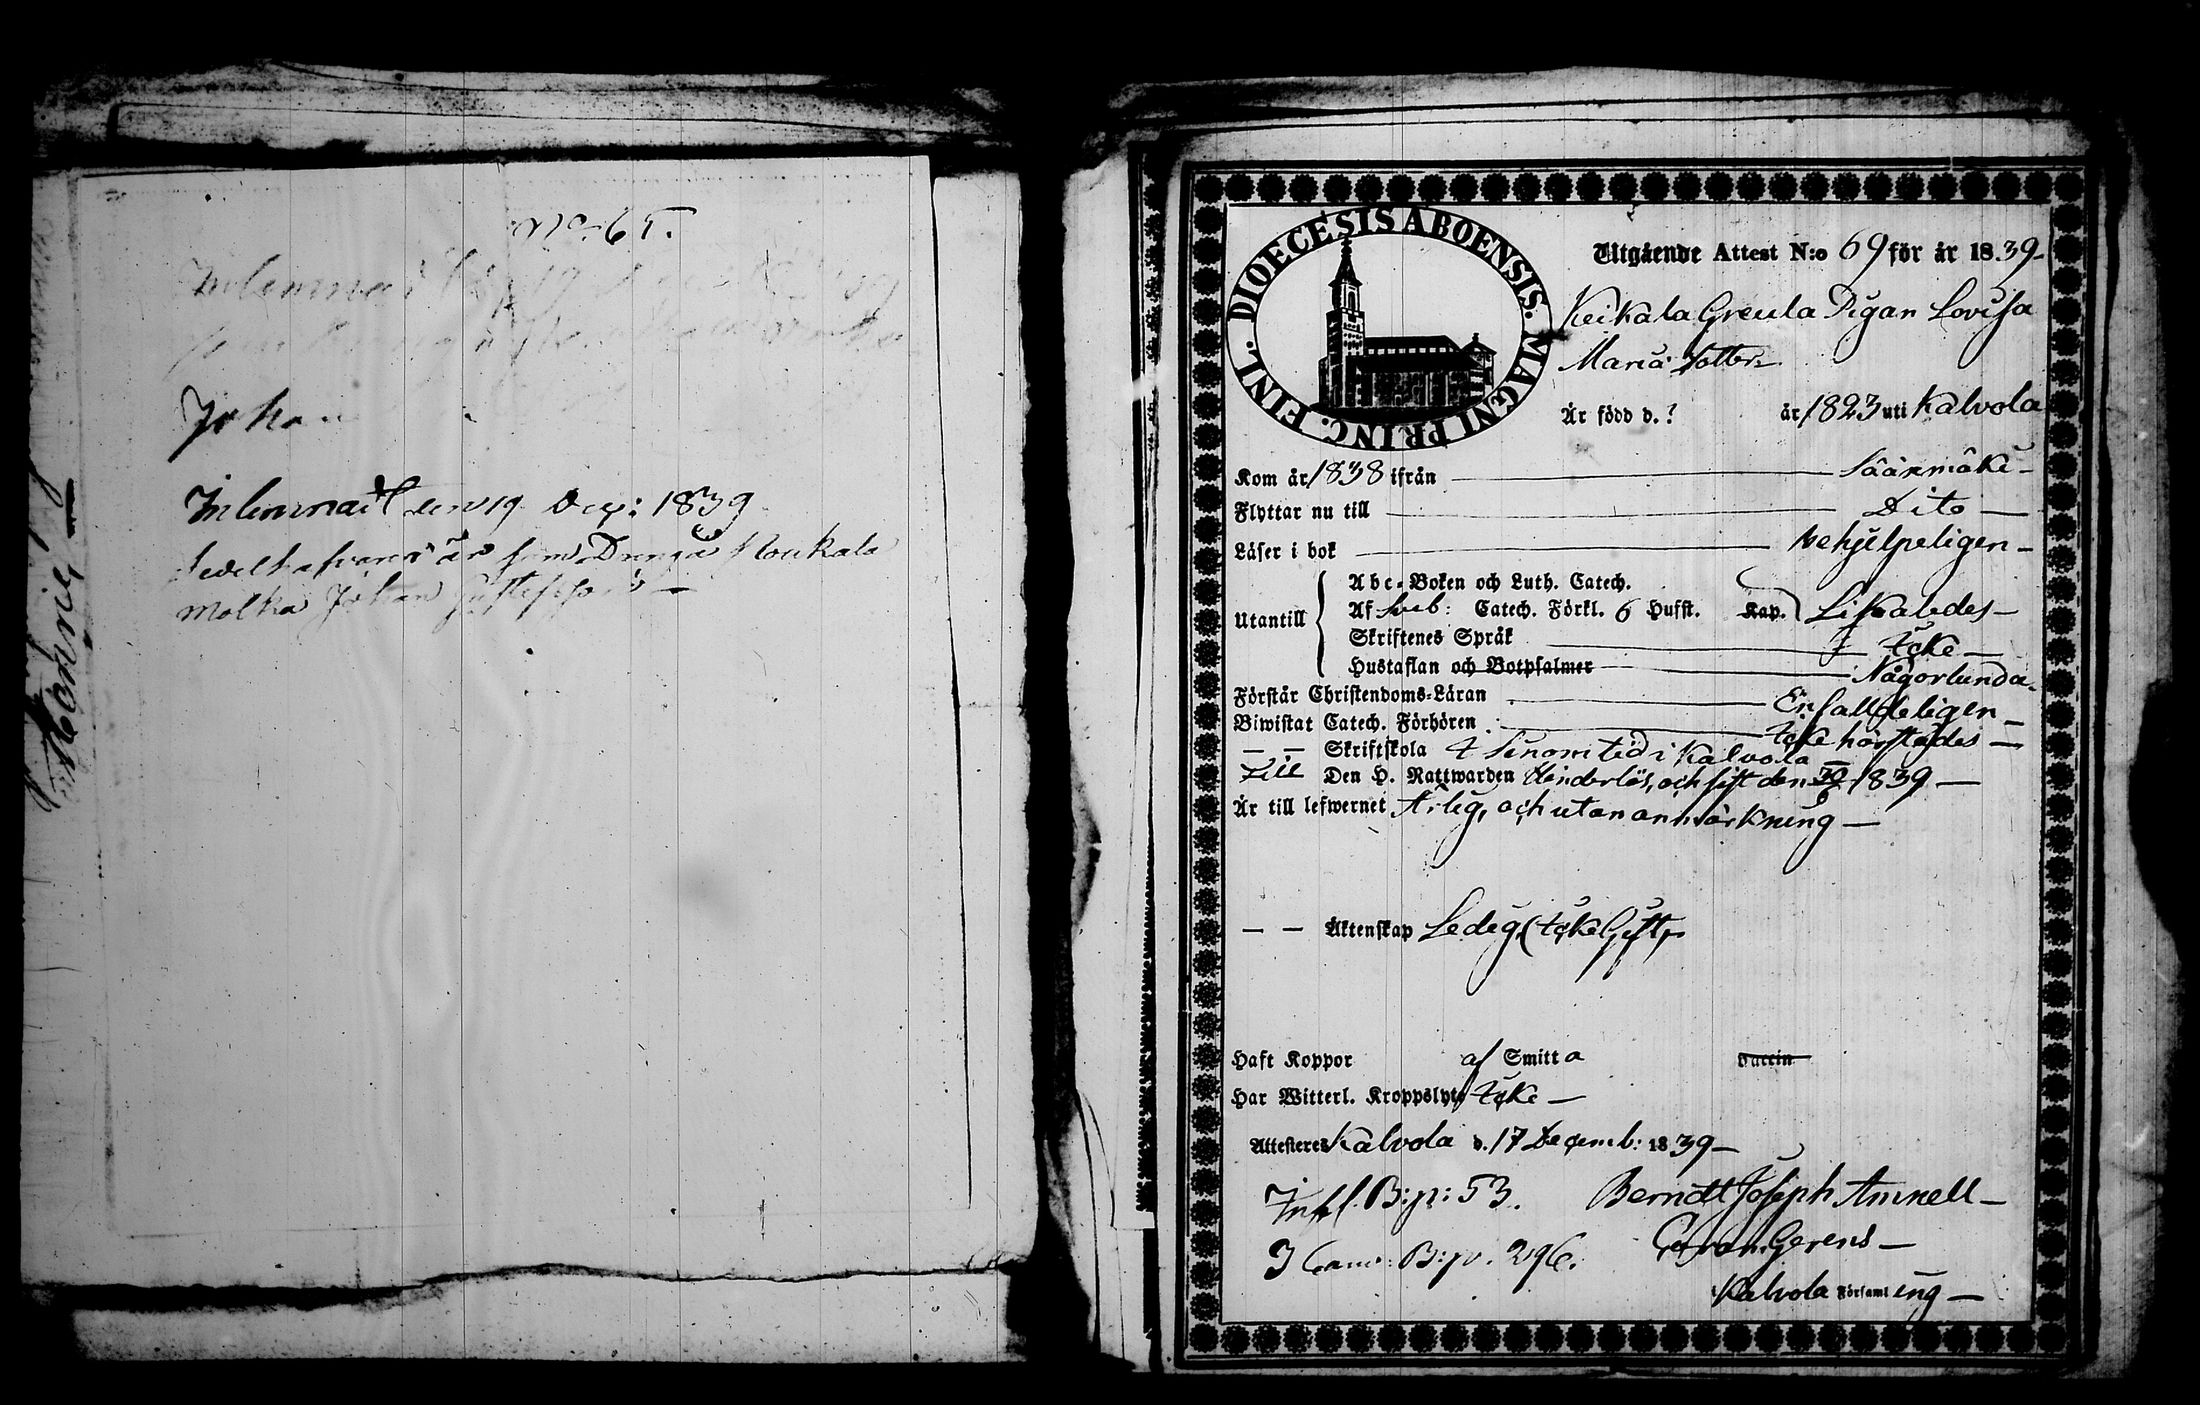 No: 65.
Inlemnad
Johan
Inlemnadt den 19 Dec: 1839
är som Dräng i Roukala
Molka Johan Gustafsson —
DIOECESIS ABOENSIS. MAGNI PRINC. FINL.
Utgående Attest N:o 69 för år 1839
Keikala Greula Pigan Lovisa
Maria Dotter
Är född d. ? år 1823 uti Kalvola
Kom år 1838 ifrån — Sääxmäki —
Flyttar nu till — Dito —
Läser i bok — behjelpeligen —
Utantill
Abc-Boken och Luth. Catech.
Af Sveb: Catech. Förkl. 6 Hufst. Kap. Likaledes —
Skriftenes Språk — Icke —
Hustaflan och Botpsalmer — Någorlunda
Förstår Christendoms-Läran — Enfalldeligen —
Biwistat Catech. Förhören — Icke härstädes —
— — Skriftskola I sinom tid i Kalvola —
Till Den H. Nattwarden Hinderlös, och sist den 1839 —
Är till lefwernet Ärlig, och utan anmärkning —
— — Äktenskap Ledig, (Icke Gift,
Haft Koppor af Smitta vaccin
Har Witterl. Kroppslyte Icke —
Attesteres Kalvola d. 17 Decemb: 1839 —
Infl. B: p: 53. Berndt Joseph Amnell —
I Com: B: p. 296. Past. Gerens —
Kalvola Församling —